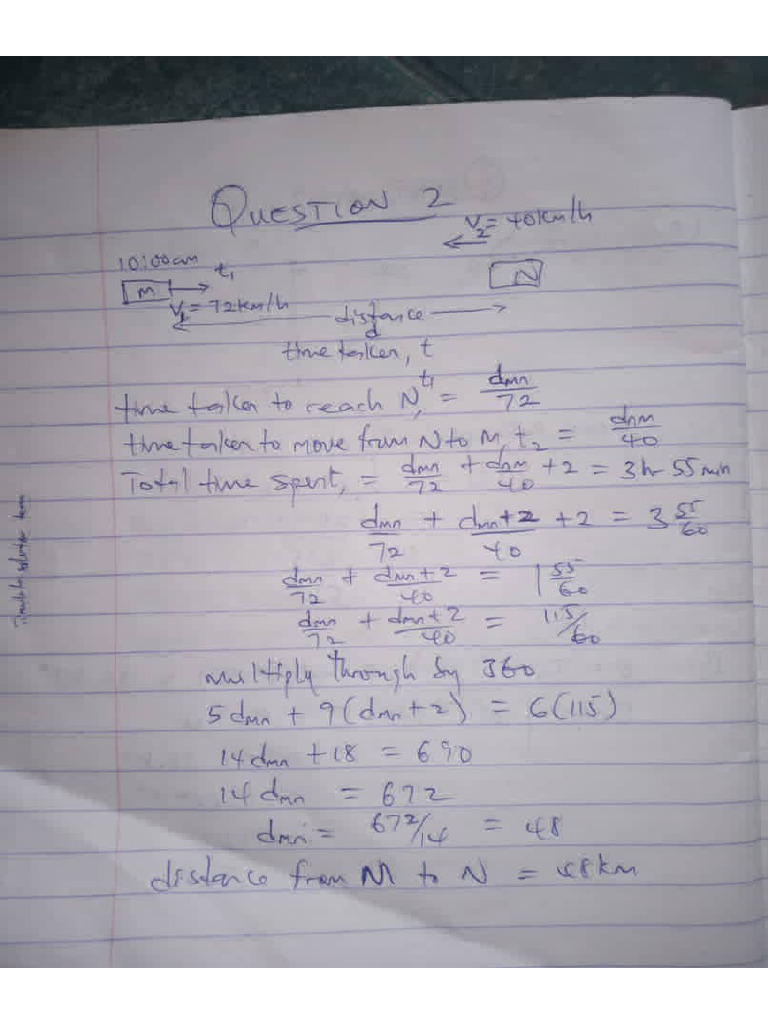 QUESTION 2
V₂ = 40km/h
10:00am
t₁
M
N
V₁ = 72km/h
distance
d
time taken, t
time taken to reach N, t₁ = dmn/72
time taken to move from N to M, t₂ = dnm/40
Total time spent, = dmn/72 + dnm/40 + 2 = 3hr 55min
dmn/72 + dmn+2/40 + 2 = 3 55/60
dmn/72 + dmn+2/40 = 1 55/60
dmn/72 + dmn+2/40 = 115/60
multiply through by 360
5dmn + 9(dmn+2) = 6(115)
14dmn + 18 = 690
14dmn = 672
dmn = 672/14 = 48
distance from M to N = 48km